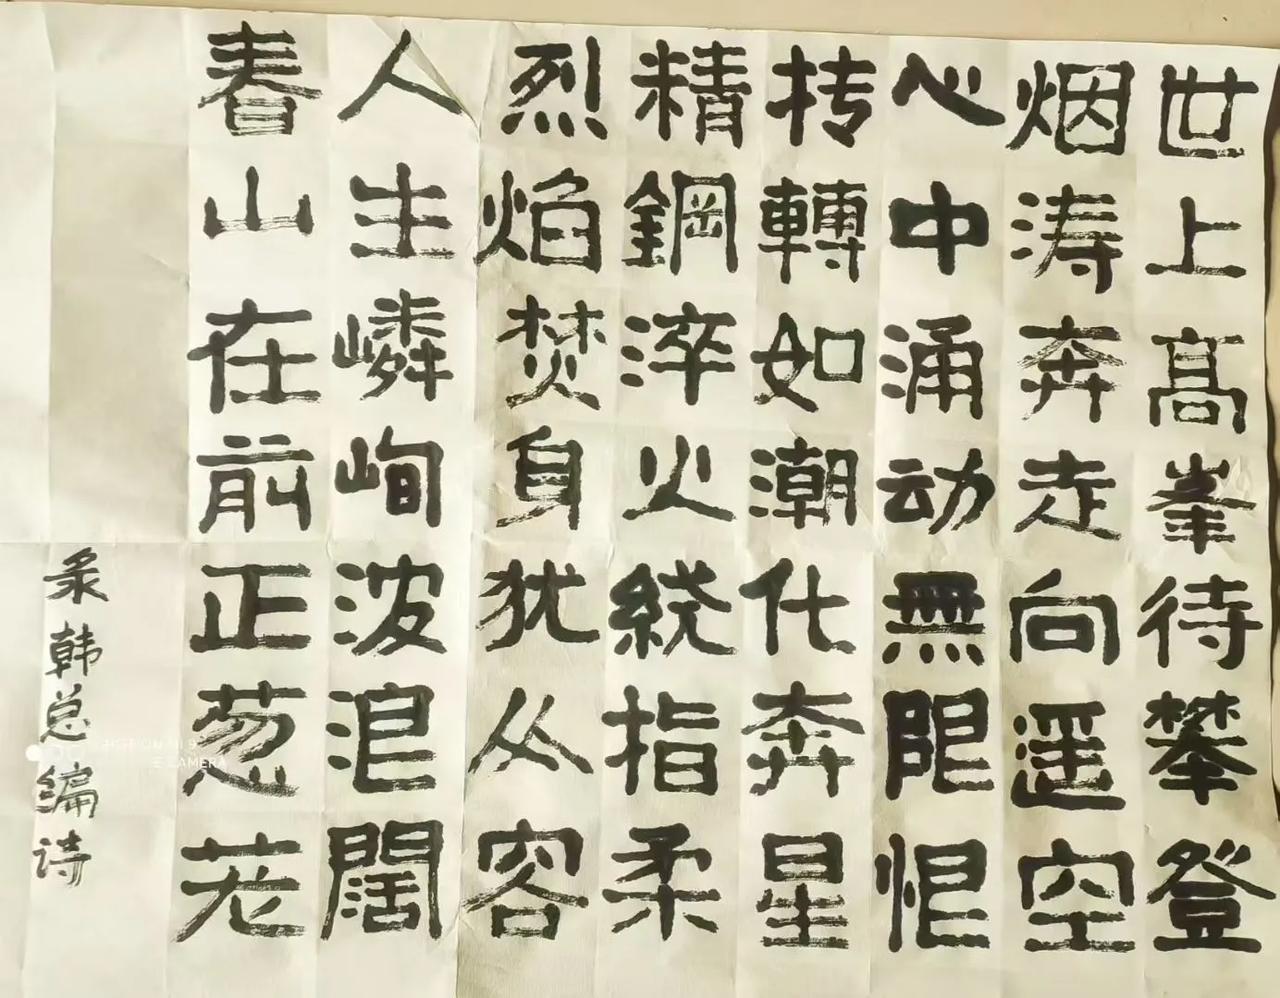 世上髙峯待攀登
烟涛奔走向遥空
心中涌动無限恨
抟轉如潮化奔星
精鋼淬火绕指柔
烈焰焚身犹从容
人生嶙峋波浪闊
春山在前正葱茏
录韩总编诗